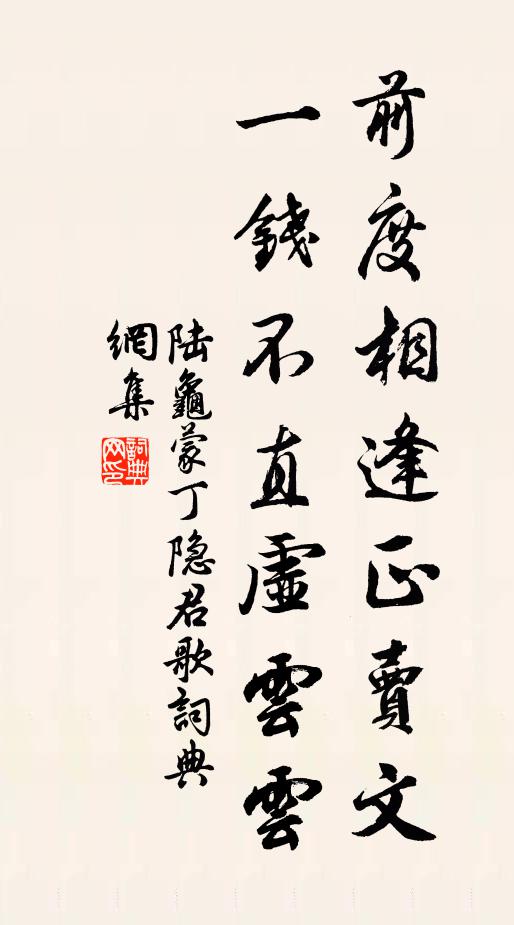 前度相逢正賣文
一錢不直虛雲雲
陆龜蒙丁隐君歌詞典
網集
詞典网印